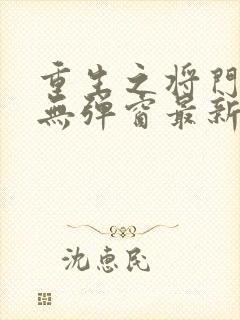 重生之将門
無弹窗最新
沈惠民